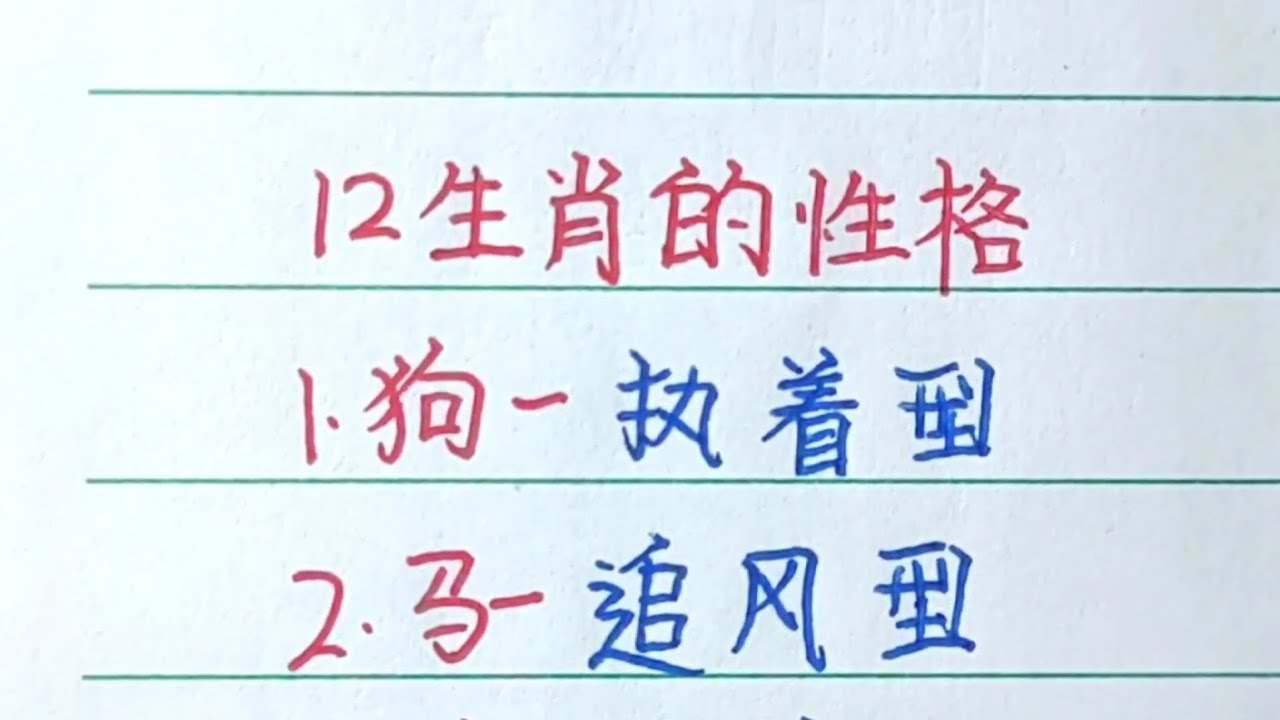 12生肖的性格
1.狗-执着型
2.马-追风型